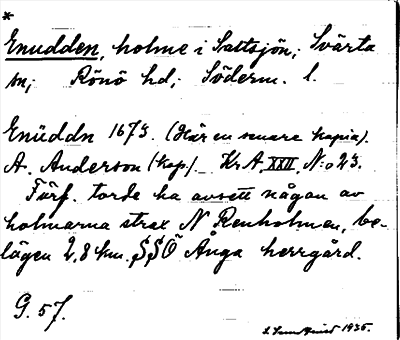 *
Enudden, holme i Sattsjön; Svärta
sn; Rönö hd; Söderm. l.
Enüddn 1673. (Här en senare kopia).
A. Anderson (kop). KrA, XXII, N:o 23.
Förf. torde ha avsett någon av
holmarna strax N Renholmen, be-
lägen 2,8 km. SSÖ Ånga herrgård.
G. 57.
1935.